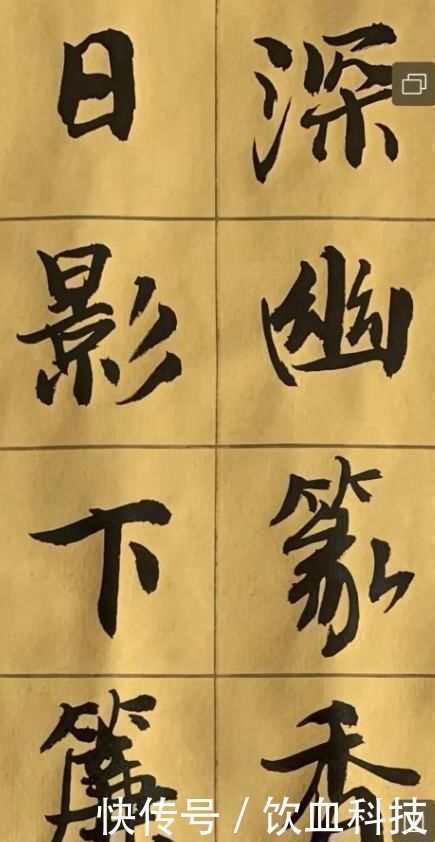 深幽篆香
日影下簾
快传号 / 饮血科技